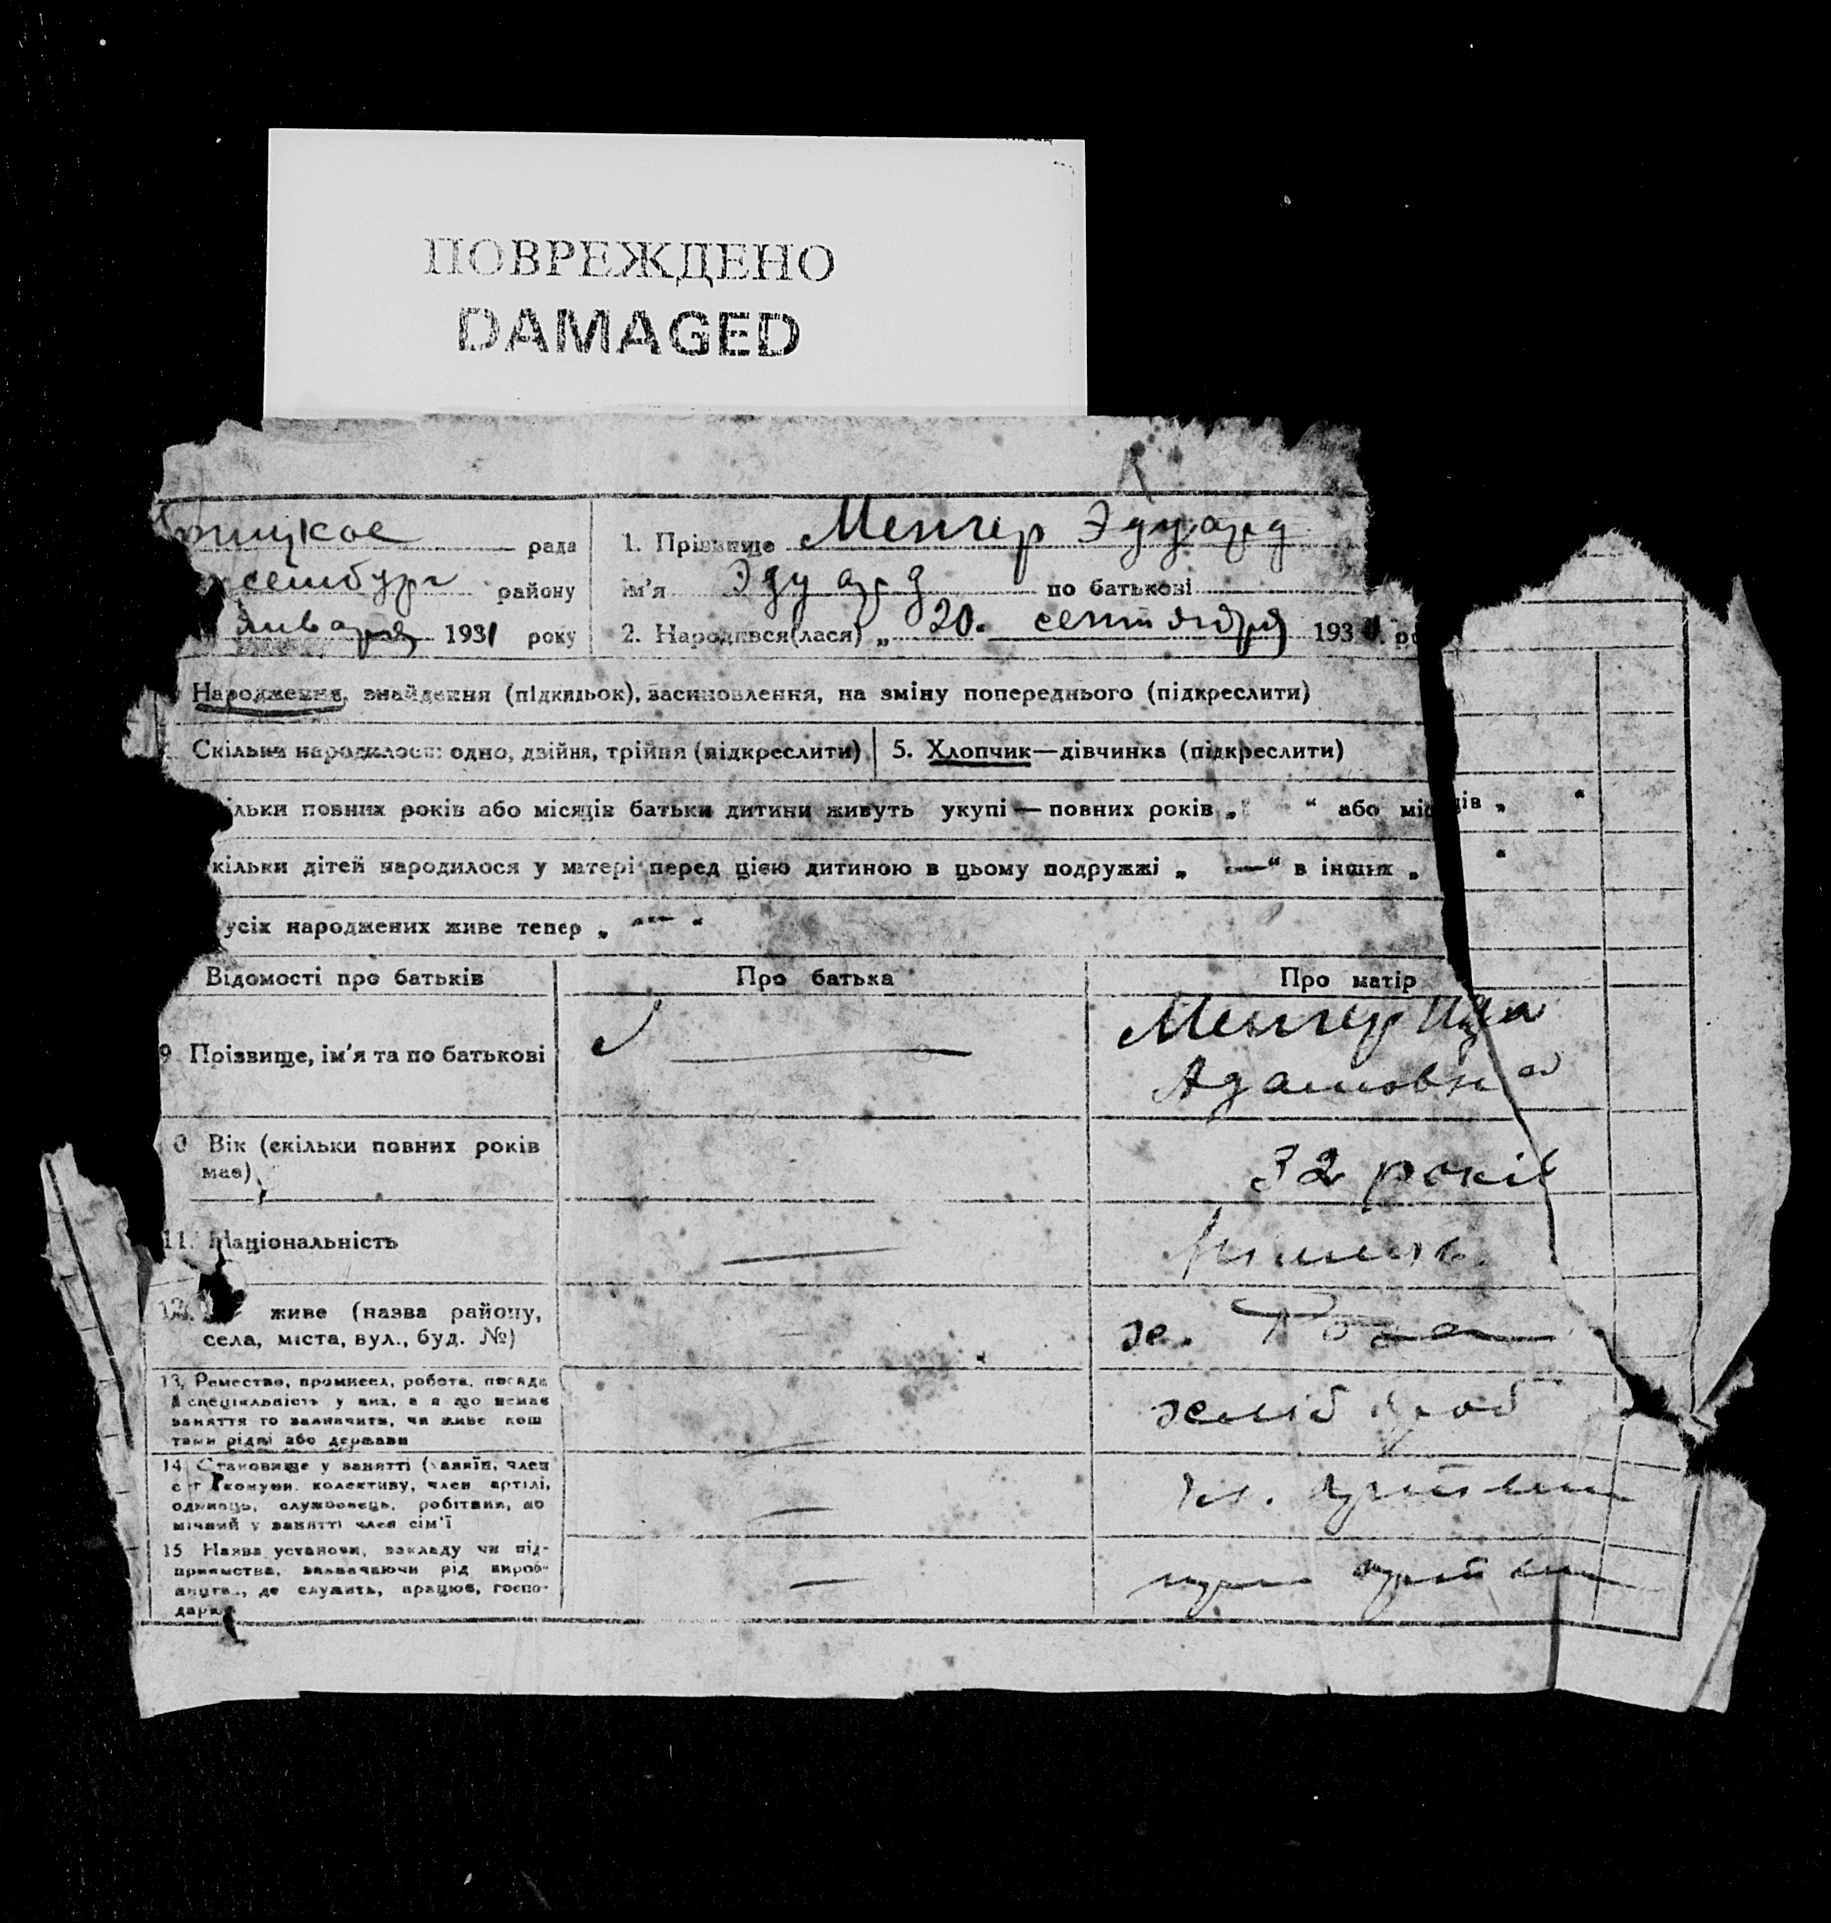 ПОВРЕЖДЕНО
DAMAGED
рада
району
января 1931 року
1. Прізвище Менгер Эдуард
ім'я Эдуард по батькові
2. Народився(лася) „ 20. сентября 193
Народження, знайдення (підкидьок), засиновлення, на зміну попереднього (підкреслити)
Скільки народилося: одно, двійня, трійня (підкреслити)
5. Хлопчик—дівчинка (підкреслити)
ільки повних років або місяців батьки дитини живуть укупі — повних років „ “ або місяців „ “
кільки дітей народилося у матері перед цією дитиною в цьому подружжі „ — “ в інших „ “
усіх народжених живе тепер „ — “
Відомості про батьків
Про батька
Про матір
9 Прізвище, ім'я та по батькові
—
Менгер Ида
Адамовна
0 Вік (скільки повних років
має)
32 років
11. Національність
—
12. живе (назва району,
села, міста, вул., буд. №)
13, Ремество, промисел, робота, посада
й спеціяльність у них, а я що немає
заняття то зазначити, чи живе кош
тами рідні або держави
—
хлібороб
14 Становище у занятті (хазяїн, член
с-г комуни, колективу, член артілі,
одинець, службовець, робітник, до
мічний у занятті член сім'ї
—
15 Назва установи, закладу чи під-
приємства, зазначаючи рід вироб-
ництва, де служить, працює, госпо-
дарює
—